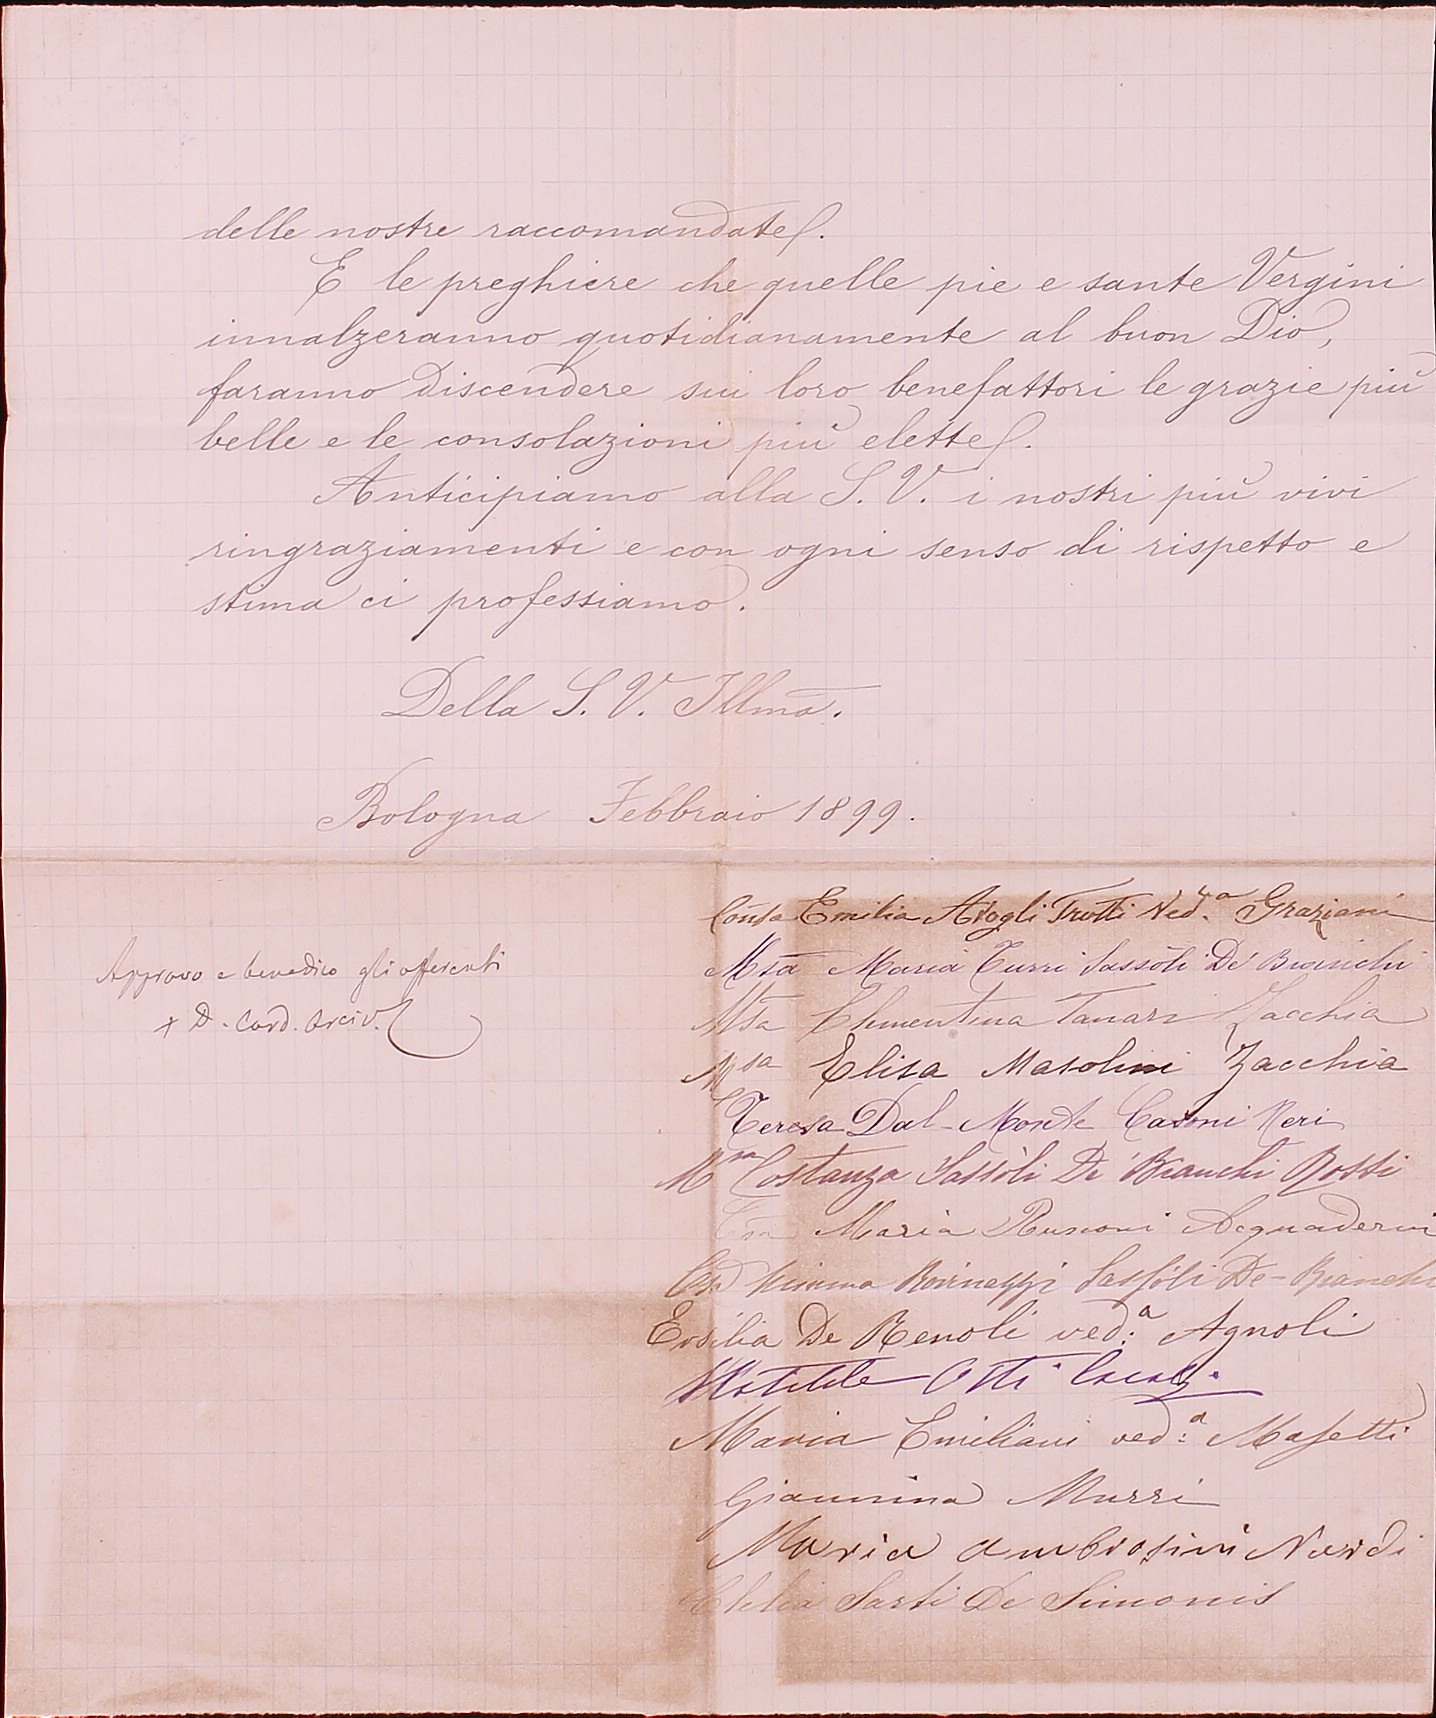 delle nostre raccomandate.
E le preghiere che quelle pie e sante Vergini
innalzeranno quotidianamente al buon Dio,
faranno discendere sui loro benefattori le grazie più
belle e le consolazioni più elette.
Anticipiamo alla S. V. i nostri più vivi
ringraziamenti e con ogni senso di rispetto e
stima ci professiamo.
Della S. V. Illma.
Bologna Febbraio 1899.
Approvo e benedico gli offerenti
+ D. Card. Arciv.
Contsa Emilia Avogli Trotti Ved.a Graziani
Msa Maria Turri Sassòli De' Bianchi
Msa Clementina Tanari Zacchia
Msa Elisa Masolini Zacchia
Teresa Dal-Monte Casoni Neri
Msa Costanza Sassòli De' Bianchi Rossi
Maria Rusconi Acquaderni
Sassòli De-Bianchi
Ersilia De Renoli ved:a Agnoli
Matilde
Maria Emiliani ved:a Masetti
Giannina Murri
Maria Ambrosini Nardi
Clelia Sarti De Simonis